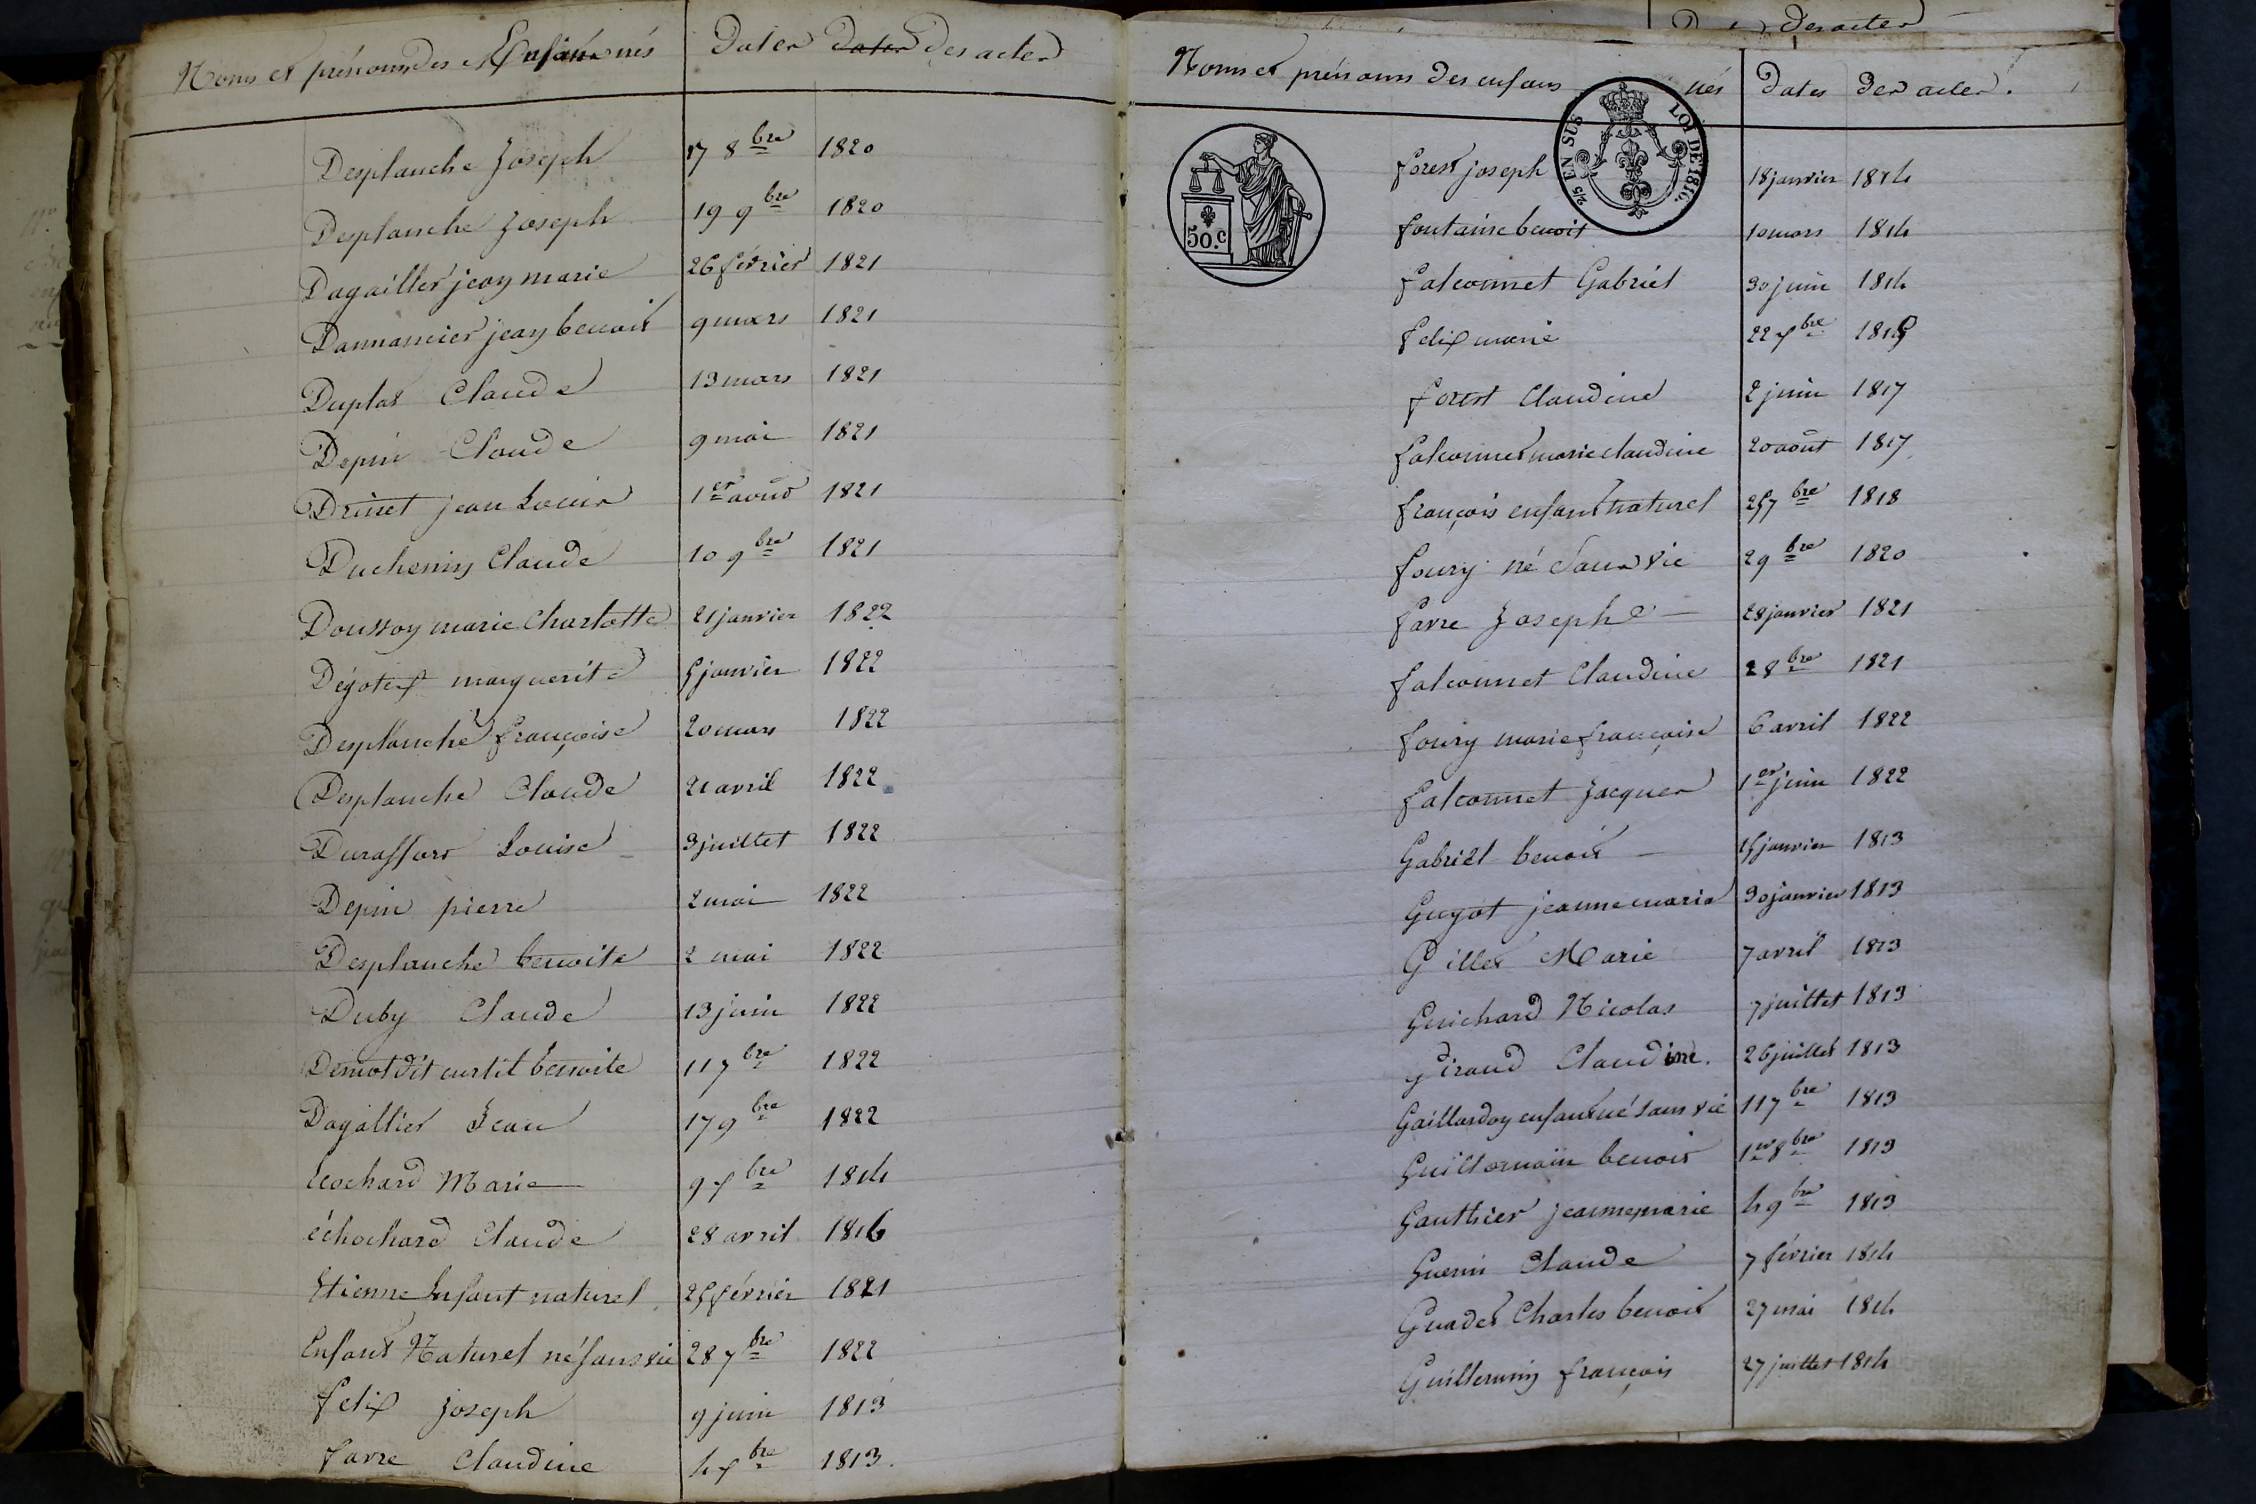 Noms et prénoms des Enfans nés Dates Dates des actes
Desplanche Joseph 17 8bre 1820
Desplanche Joseph 19 9bre 1820
Dagaillier jean marie 26 février 1821
Dannancier jean benoit 9 mars 1821
Duplat Claude 13 mars 1821
Depin Claude 9 mai 1821
Drivet jean Louis 1er août 1821
Duchenin Claude 10 9bre 1821
Doussoy marie Charlotte 21 janvier 1822
Dégotex marguerite 5 janvier 1822
Desplanche françoise 20 mars 1822
Desplanche Claude 21 avril 1822
Duraffort Louise 3 juillet 1822
Depin pierre 2 mai 1822
Desplanche benoite 2 mai 1822
Duby Claude 13 juin 1822
dit curtil benoite 11 7bre 1822
Dagallier Jean 17 9bre 1822
Ecochard Marie 9 xbre 1814
échochard Claude 28 avril 1816
Etienne Enfant naturel 25 février 1821
Enfant Naturel né sans vie 28 7bre 1822
felix Joseph 9 juin 1813
favre Claudine 4 xbre 1813
des actes
Noms et prénoms des enfans nés Dates des actes.
2/5 EN SUS
LOI DE 1816.
50.c
forest joseph 18 janvier 1814
fontaine benoit 10 mars 1814
falconnet Gabriel 30 juin 1814
felix marie 22 xbre 1815
forest Claudine 2 juin 1817
falconnet marie claudine 20 août 1817
françois enfant naturel 25 7bre 1818
foury né Sans vie 2 9bre 1820
favre Josephe 28 janvier 1821
falconnet Claudine 2 8bre 1821
foury marie françoise 6 avril 1822
falconnet Jacques 1er juin 1822
Gabriel benoit 15 janvier 1813
Guyot jeanne marie 30 janvier 1813
Gillet Marie 7 avril 1813
Guichard Nicolas 7 juillet 1813
Giraud Claudine. 26 juillet 1813
Gaillardoy enfant né sans vie 11 7bre 1813
Guillermain benoit 1er 8bre 1813
Gauthier jeanne marie 4 9bre 1813
Guerin Claude 7 février 1814
Guadet Charles benoit 27 mai 1814
Guillermin françois 27 juillet 1814